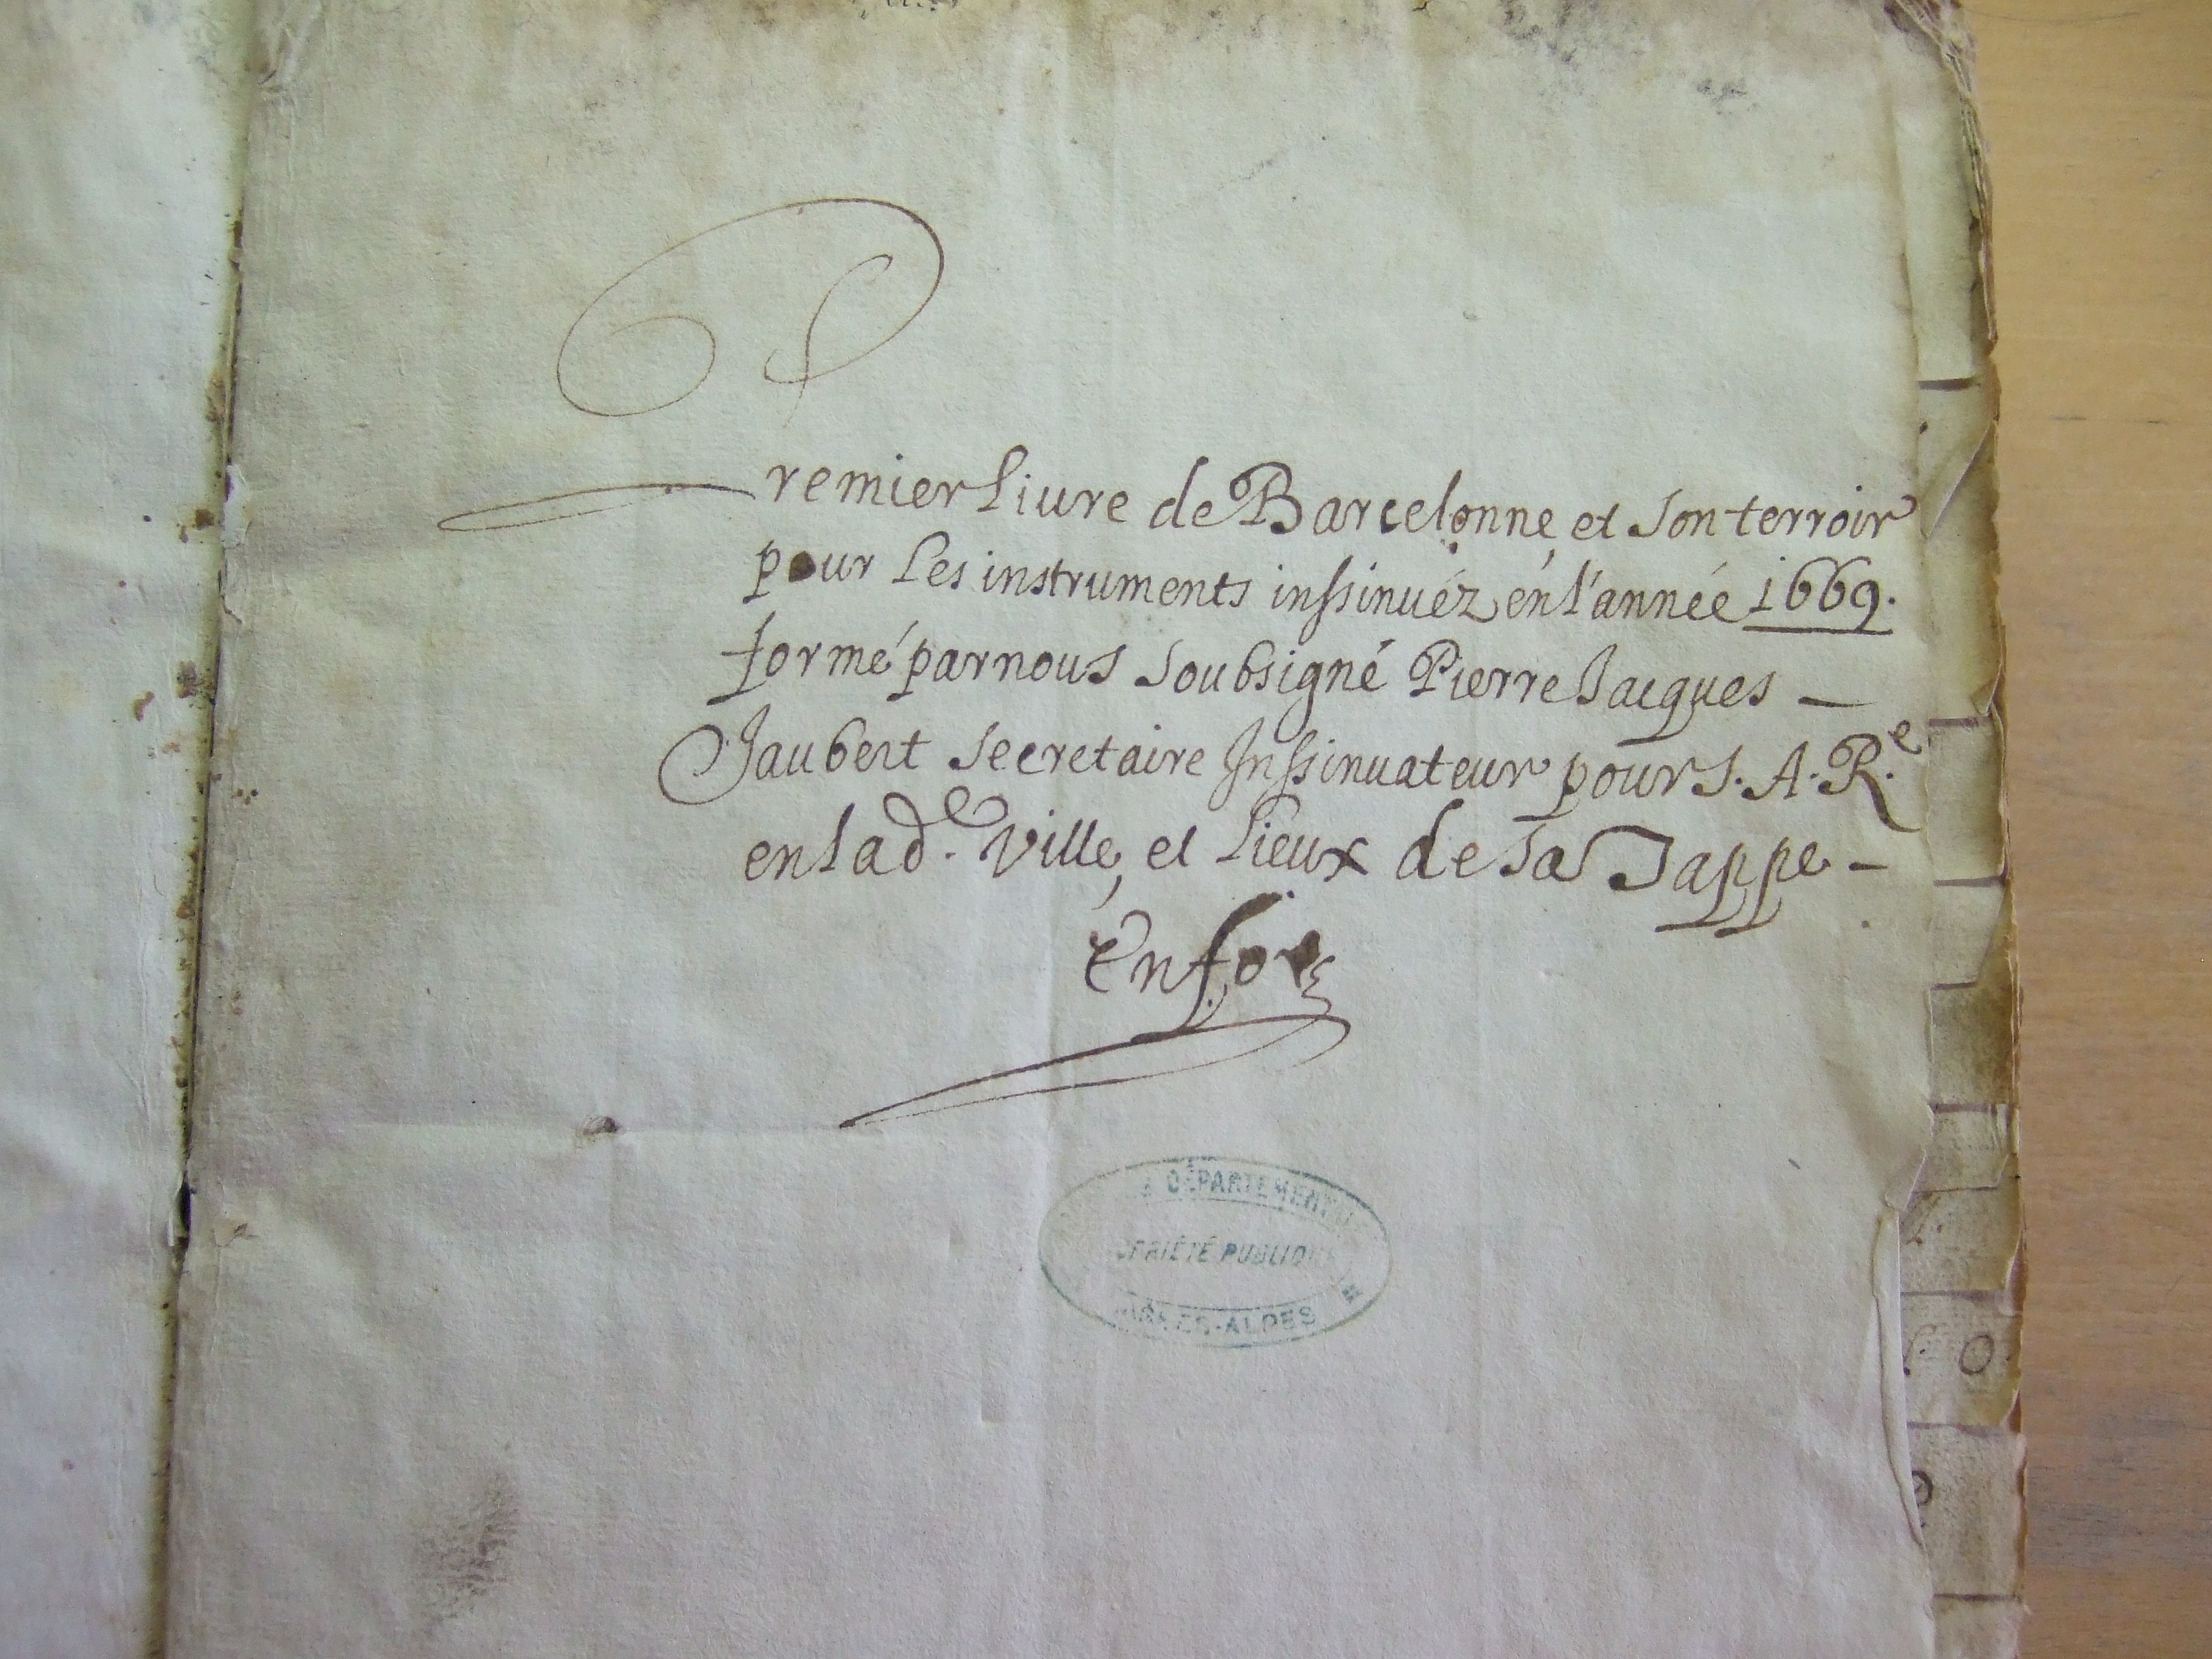 Premier Liure de Barcelonne, et son terroir
pour Les instruments inssinuéz en l'année 1669.
formé par nous soubsigné Pierre Jacques —
Jaubert secretaire Inssinuateur pour S. A. R.e
en lad.e ville, et Lieux de sa Tappe —
En foy
DÉPARTEMENTALES
PROPRIÉTÉ PUBLIQUE
BASSES-ALPES